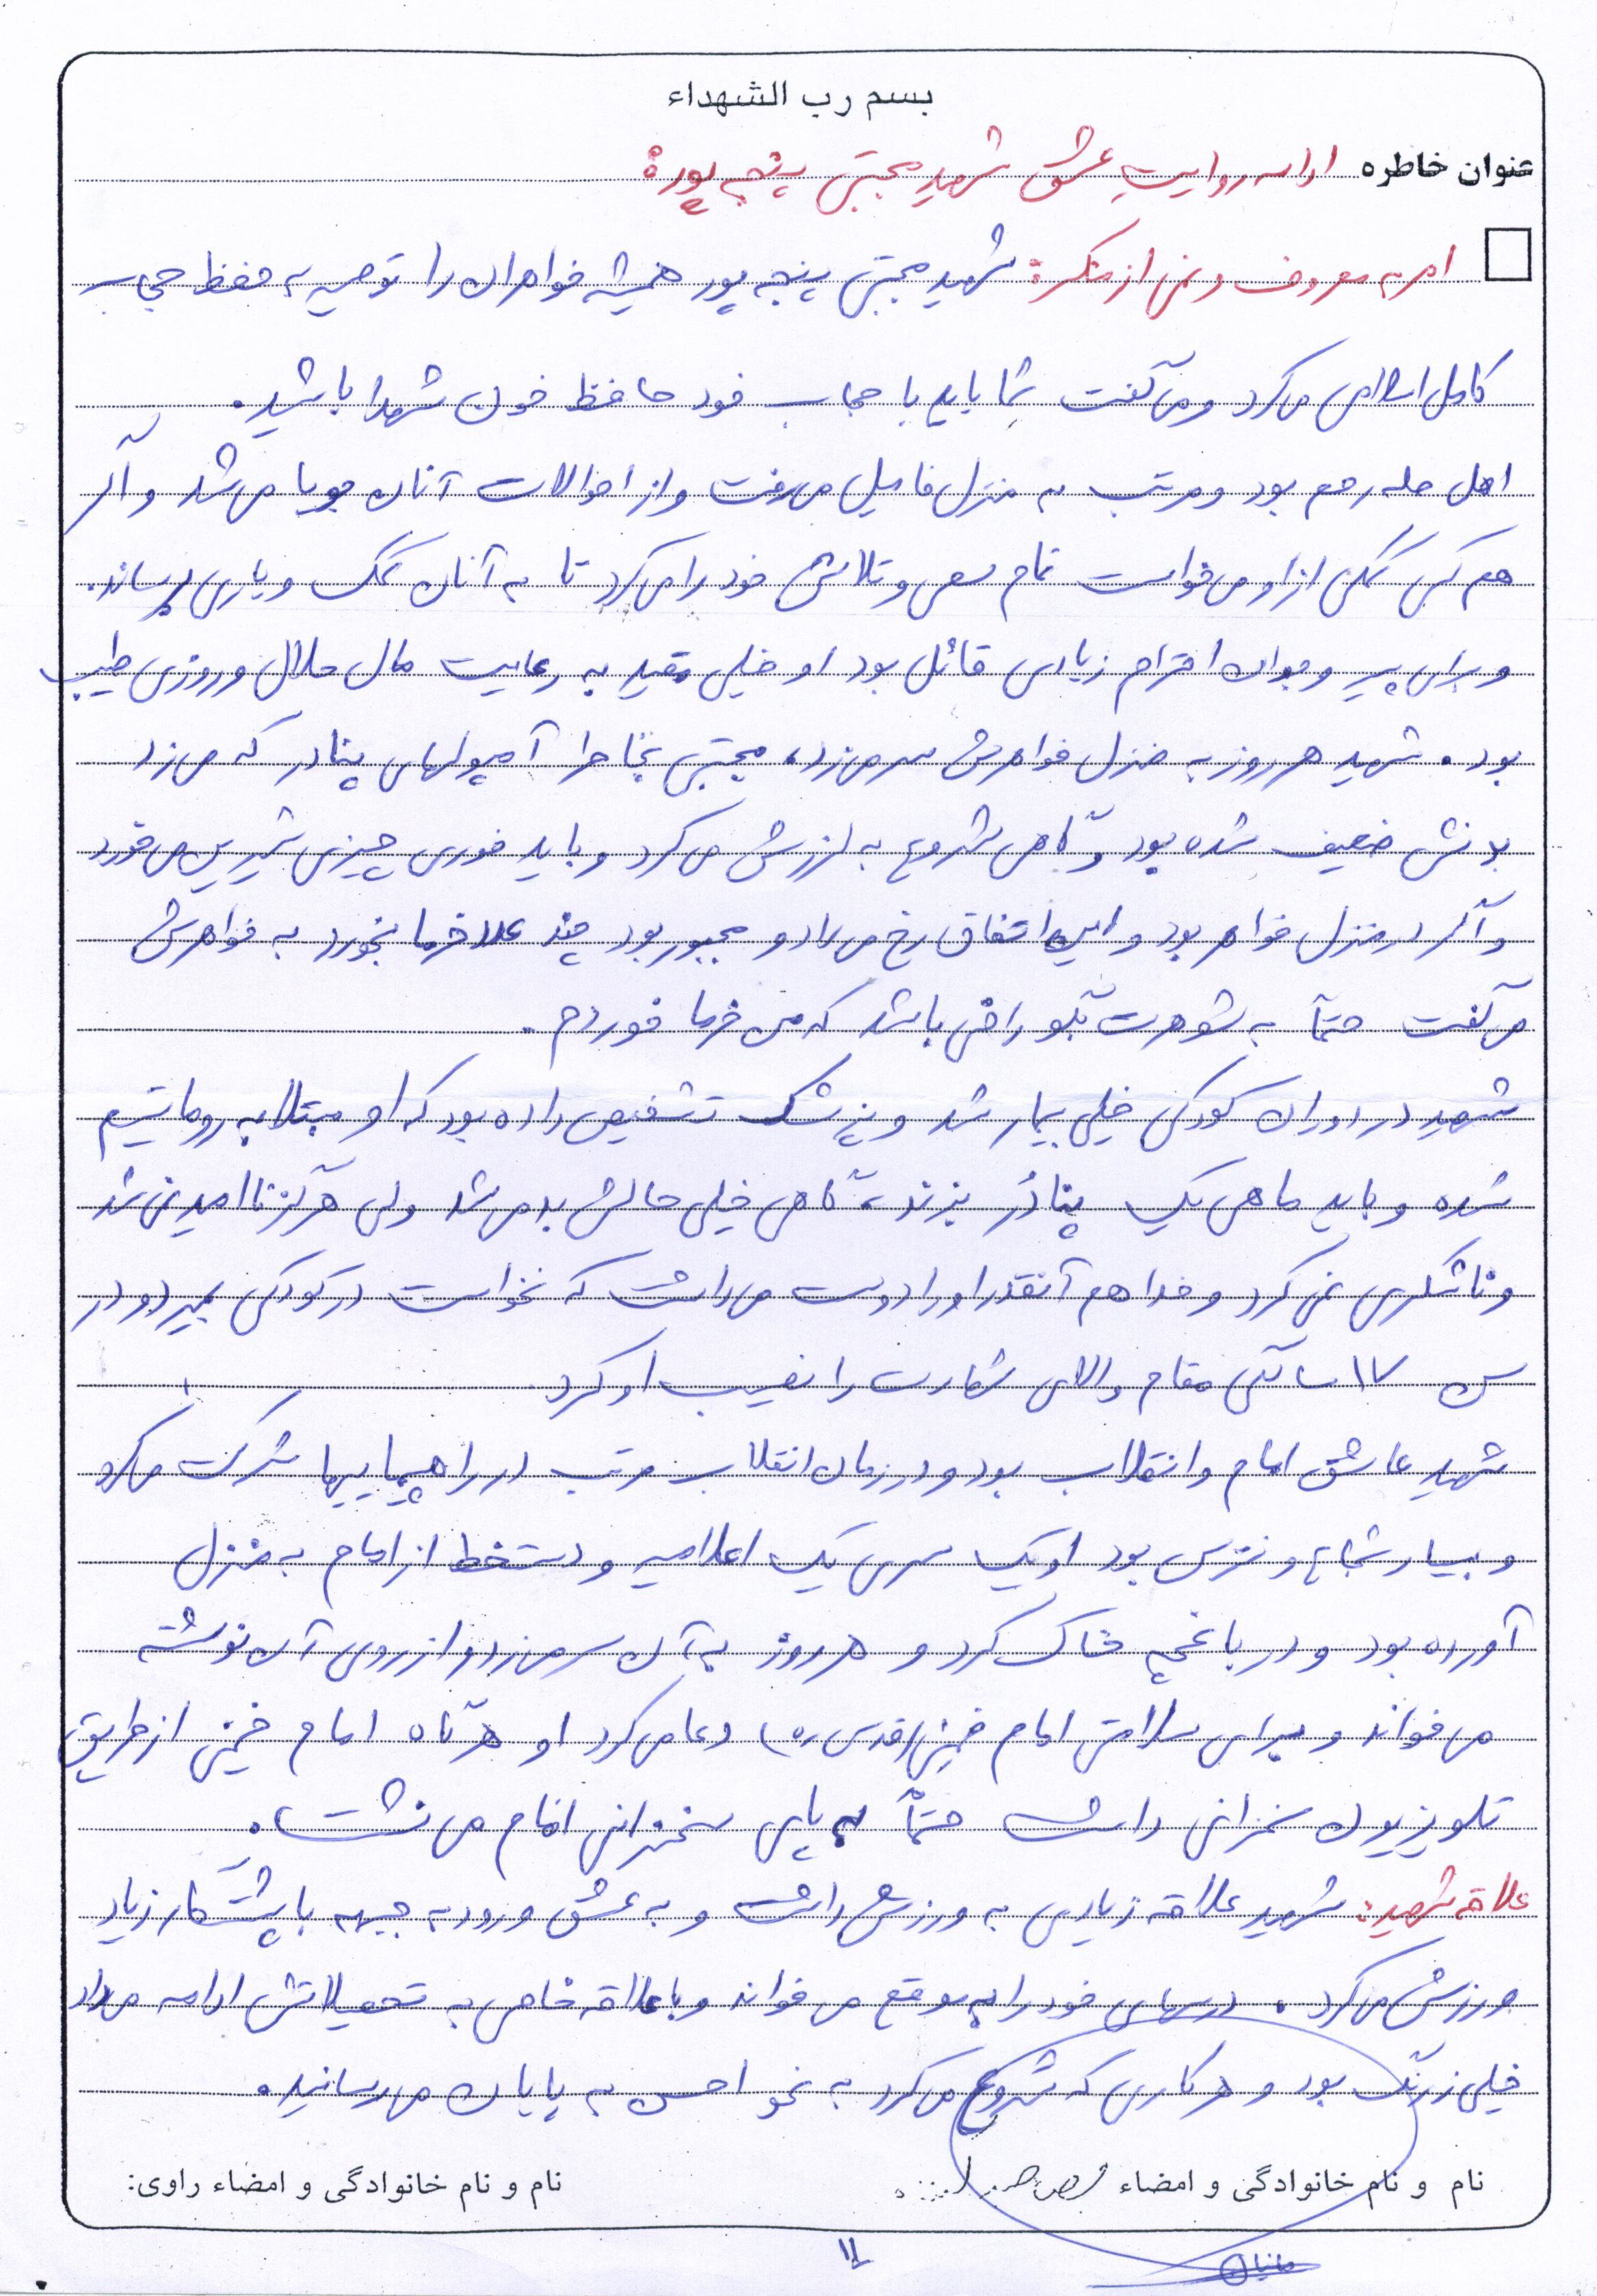 بسم رب الشهداء
عنوان خاطره ادامه روایت عشق شهید مجتبی پنجه پور:
امر به معروف و نهی از منکر: شهید مجتبی پنجه پور همیشه خواهران را توصیه به حفظ حجاب
کامل اسلامی می کرد و می گفت شما باید با حجاب خود حافظ خون شهدا باشید.
اهل صله رحم بود و مرتب به منزل فامیل می رفت و از احوالات آنان جویا می شد و اگر
هم کسی کمکی از او می خواست تمام سعی و تلاش خود را می کرد تا به آنان کمک و یاری برساند.
و برای پیر و جوان احترام زیادی قائل بود او خیلی مقید به رعایت مال حلال و روزی طیب
بود. شهید هر روز به منزل خواهرش سر می زد، مجتبی بخاطر آمپولهای پنادر که می زد
بدنش ضعیف شده بود و گاهی شروع به لرزش می کرد و باید فوری چیزی شیرین می خورد
و اگر در منزل خواهر بود و این اتفاق رخ می داد و مجبور بود چند عدد خرما بخورد به خواهرش
می گفت حتماً به شوهرت بگو راضی باشد که من خرما خوردم.
شهید در دوران کودکی خیلی بیمار شد و پزشک تشخیص داده بود که او مبتلا به روماتیسم
شده و باید ماهی یک پنادر بزند، گاهی خیلی حالش بد می شد ولی هرگز ناامید نمی شد
و ناشکری نمی کرد و خدا هم آنقدر او را دوست می داشت که نخواست در کودکی بمیرد و در
سن ۱۷ سالگی مقام والای شهادت را نصیب او کرد.
شهید عاشق امام و انقلاب بود و در زمان انقلاب مرتب در راهپیماییها شرکت می کرد
و بسیار شجاع و نترس بود او یک سری یک اعلامیه و دستخط از امام به منزل
آورده بود و در باغچه خاک کرد و هر روز به آن سر می زد و از روی آن نوشته
می خواند و برای سلامتی امام خمینی (قدس ره) دعا می کرد او هرگاه امام خمینی از طریق
تلویزیون سخنرانی داشت حتماً به پای سخنرانی امام می نشست.
علاقه شهید: شهید علاقه زیادی به ورزش داشت و به عشق ورود به جبهه با پشتکار زیاد
ورزش می کرد. درسهای خود را به موقع می خواند و با علاقه خاصی به تحصیلاتش ادامه می داد
خیلی زرنگ بود و هر کاری که شروع می کرد به نحو احسن به پایان می رسانید.
نام و نام خانوادگی و امضاء
نام و نام خانوادگی و امضاء راوی: